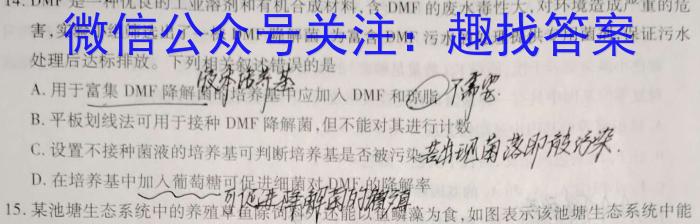 14. DMF 是一种优良的工业溶剂和有机合成材料,含 DMF 的废水毒性大,对环境造成严重的危
微信公众号关注:趣找答案
害,实 DMF 降解菌 污水 保证污水
处理后达标排放。下列相关叙述错误的是
液体培养基
A. 用于富集 DMF 降解菌的培养基中应加入 DMF 和琼脂 不需要
B. 平板划线法可用于接种 DMF 降解菌,但不能对其进行计数
C. 设置不接种菌液的培养基可判断培养基是否被污染 若出现菌落即被污染.
D. 在培养基中加入葡萄糖可促进细菌对 DMF 的降解率
可促进降解菌的
15. 某池塘生态系统中的养殖草鱼除饲料外还能以 鳞藻为食,如图表示该池塘生态系统中能